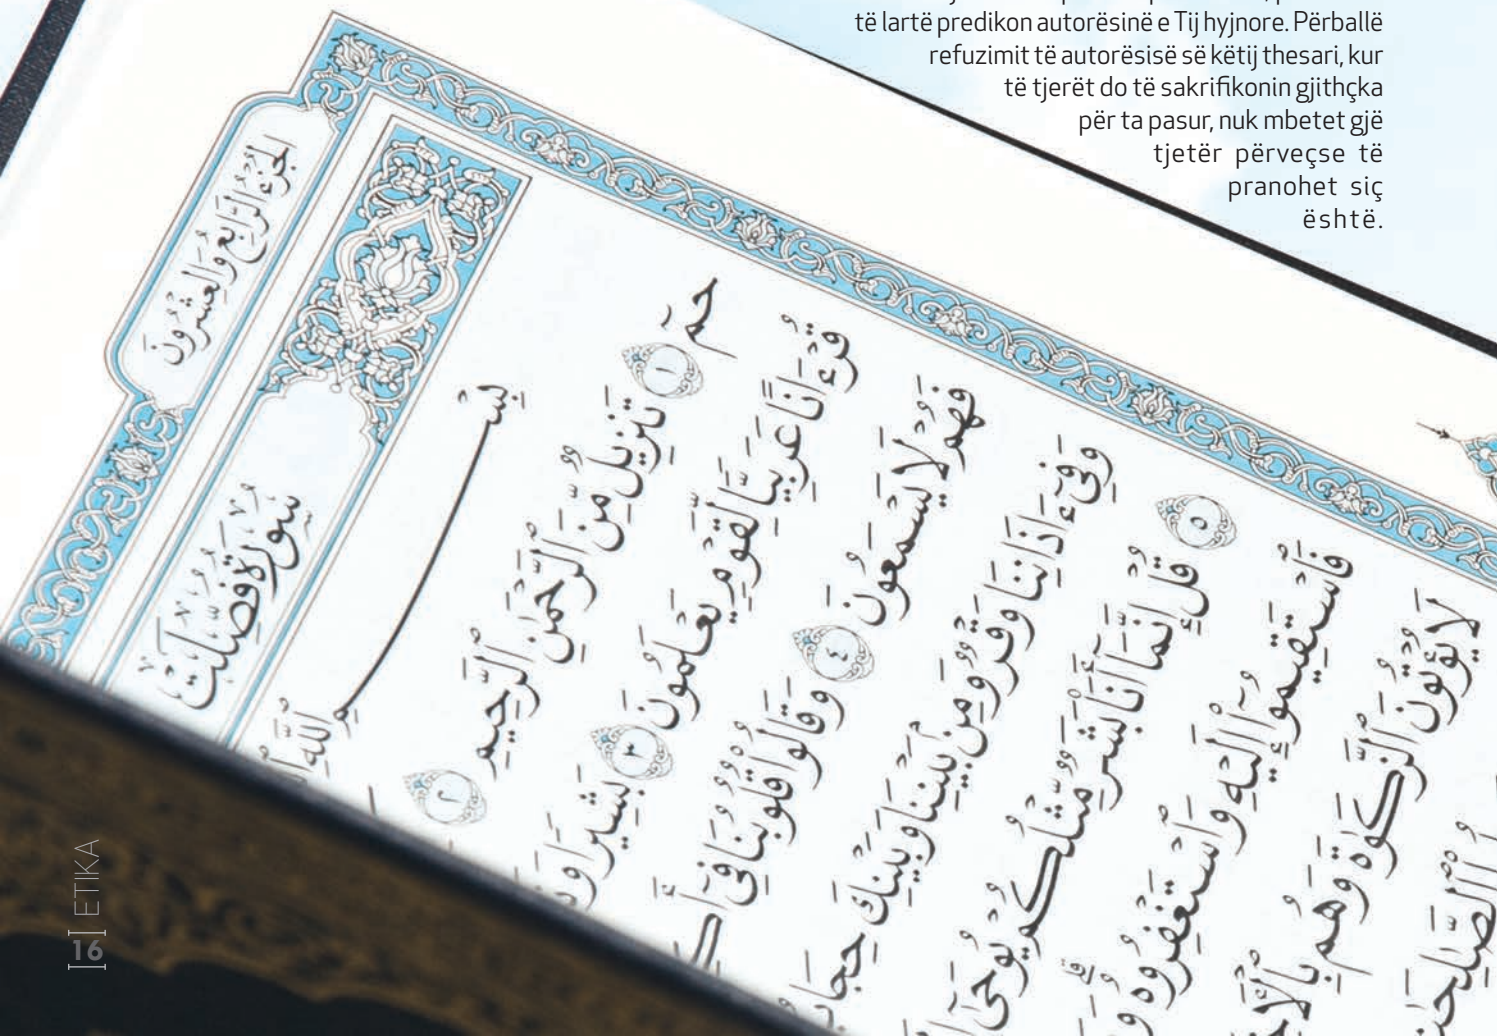 të lartë predikon autorësinë e Tij hyjnore. Përballë
refuzimit të autorësisë së këtij thesari, kur
të tjerët do të sakrifikonin gjithçka
për ta pasur, nuk mbetet gjë
tjetër përveçse të
pranohet siç
është.
الجُزْءُ الرَّابِعُ وَالعِشْرُونَ
سُورَةُ فُصِّلَتْ
بِسْمِ ٱللَّهِ
حمٓ ١ تَنزِيلٌ مِّنَ ٱلرَّحْمَٰنِ ٱلرَّحِيمِ ٢
قُرْءَانًا عَرَبِيًّا لِّقَوْمٍ يَعْلَمُونَ ٣ بَشِيرًا
فَهُمْ لَا يَسْمَعُونَ ٤ وَقَالُوا۟ قُلُوبُنَا فِىٓ
وَفِىٓ ءَاذَانِنَا وَقْرٌ وَمِنۢ بَيْنِنَا وَبَيْنِكَ
٥ قُلْ إِنَّمَآ أَنَا۠ بَشَرٌ مِّثْلُكُمْ يُوحَىٰٓ
فَٱسْتَقِيمُوٓا۟ إِلَيْهِ وَٱسْتَغْفِرُوهُ
لَا يُؤْتُونَ ٱلزَّكَوٰةَ وَهُم
16 ETIKA